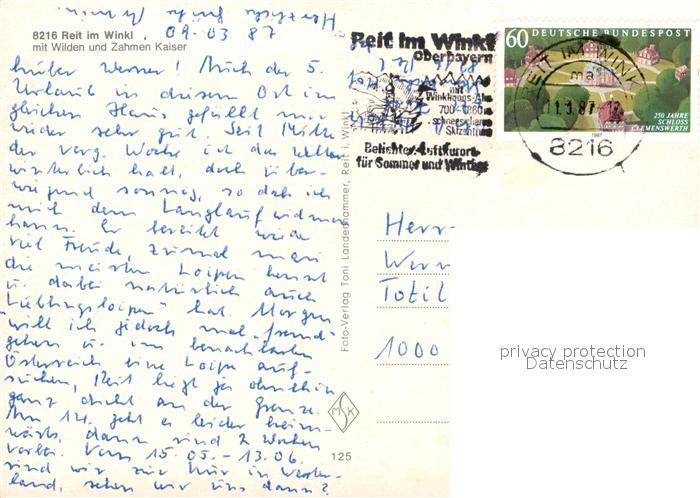 8216 Reit im Winkl
mit Wilden und Zahmen Kaiser
09.03.87
Lieber Werner! Auch der 5.
Urlaub in diesem Ort im
gleichen Haus gefällt mir
wieder sehr gut. Seit Mitte
der verg. Woche ist das Wetter
winterlich kalt, doch über-
wiegend sonnig, so daß ich
mich dem Langlauf widmen
kann. Er bereitet
viel Freude, zumal man
die meisten Loipen kennt
u. dabei natürlich auch
"Lieblingsloipen" hat. Morgen
will ich jedoch mal "fremd-
gehen" u. im benachbarten
Österreich eine Loipe auf-
suchen, Reit liegt ja ohnehin
ganz dicht an der Grenze.
Am 14. geht es leider heim-
wärts, dann sind 2 Wochen
vorbei. Vom 15.05. - 13.06.
sind wir zur Kur in Wester-
land, sehen wir uns dann?
Herzliche Grüße
Foto-Verlag Toni Landenhammer, Reit i. Winkl
MSK
125
Reit im Winkl
Oberbayern
mit
Winklmoos-Alm
700-1860 m
schneesichere
Skizentrum
Beliebter Luftkurort
für Sommer und Winter
60 DEUTSCHE BUNDESPOST
250 JAHRE
SCHLOSS
CLEMENSWERTH
1987
REIT IM WINKL
ma
11.3.87-12
8216
Herr
Wer
Totil
1000
privacy protection
Datenschutz